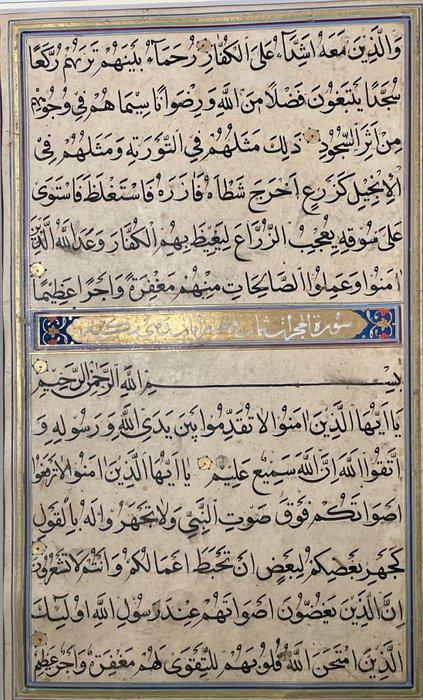 وَالَّذِينَ مَعَهُ اَشِدَّاءُ عَلَى الْكُفَّارِ رُحَمَاءُ بَيْنَهُمْ تَرَيهُمْ رُكَّعًا
سُجَّدًا يَبْتَغُونَ فَضْلًا مِنَ اللَّهِ وَرِضْوَانًا سِيمَاهُمْ فِي وُجُوهِهِمْ
مِنْ اَثَرِ السُّجُودِ ذَلِكَ مَثَلُهُمْ فِي التَّوْرَيةِ وَمَثَلُهُمْ فِي
الْاِنْجِيلِ كَزَرْعٍ اَخْرَجَ شَطْأَهُ فَآزَرَهُ فَاسْتَغْلَظَ فَاسْتَوَى
عَلَى سُوقِهِ يُعْجِبُ الزُّرَّاعَ لِيَغِيظَ بِهِمُ الْكُفَّارَ وَعَدَ اللَّهُ الَّذِينَ
اٰمَنُوا وَعَمِلُوا الصَّالِحَاتِ مِنْهُمْ مَغْفِرَةً وَاَجْرًا عَظِيمًا
سورة الحجرات ثمان
بِسْمِ اللَّهِ الرَّحْمَنِ الرَّحِيمِ
يَا اَيُّهَا الَّذِينَ اٰمَنُوا لَا تُقَدِّمُوا بَيْنَ يَدَيِ اللَّهِ وَرَسُولِهِ وَ
اتَّقُوا اللَّهَ اِنَّ اللَّهَ سَمِيعٌ عَلِيمٌ يَا اَيُّهَا الَّذِينَ اٰمَنُوا لَا تَرْفَعُوا
اَصْوَاتَكُمْ فَوْقَ صَوْتِ النَّبِيِّ وَلَا تَجْهَرُوا لَهُ بِالْقَوْلِ
كَجَهْرِ بَعْضِكُمْ لِبَعْضٍ اَنْ تَحْبَطَ اَعْمَالُكُمْ وَاَنْتُمْ لَا تَشْعُرُونَ
اِنَّ الَّذِينَ يَغُضُّونَ اَصْوَاتَهُمْ عِنْدَ رَسُولِ اللَّهِ اُولَئِكَ
الَّذِينَ امْتَحَنَ اللَّهُ قُلُوبَهُمْ لِلتَّقْوَى لَهُمْ مَغْفِرَةٌ وَاَجْرٌ عَظِيمٌ